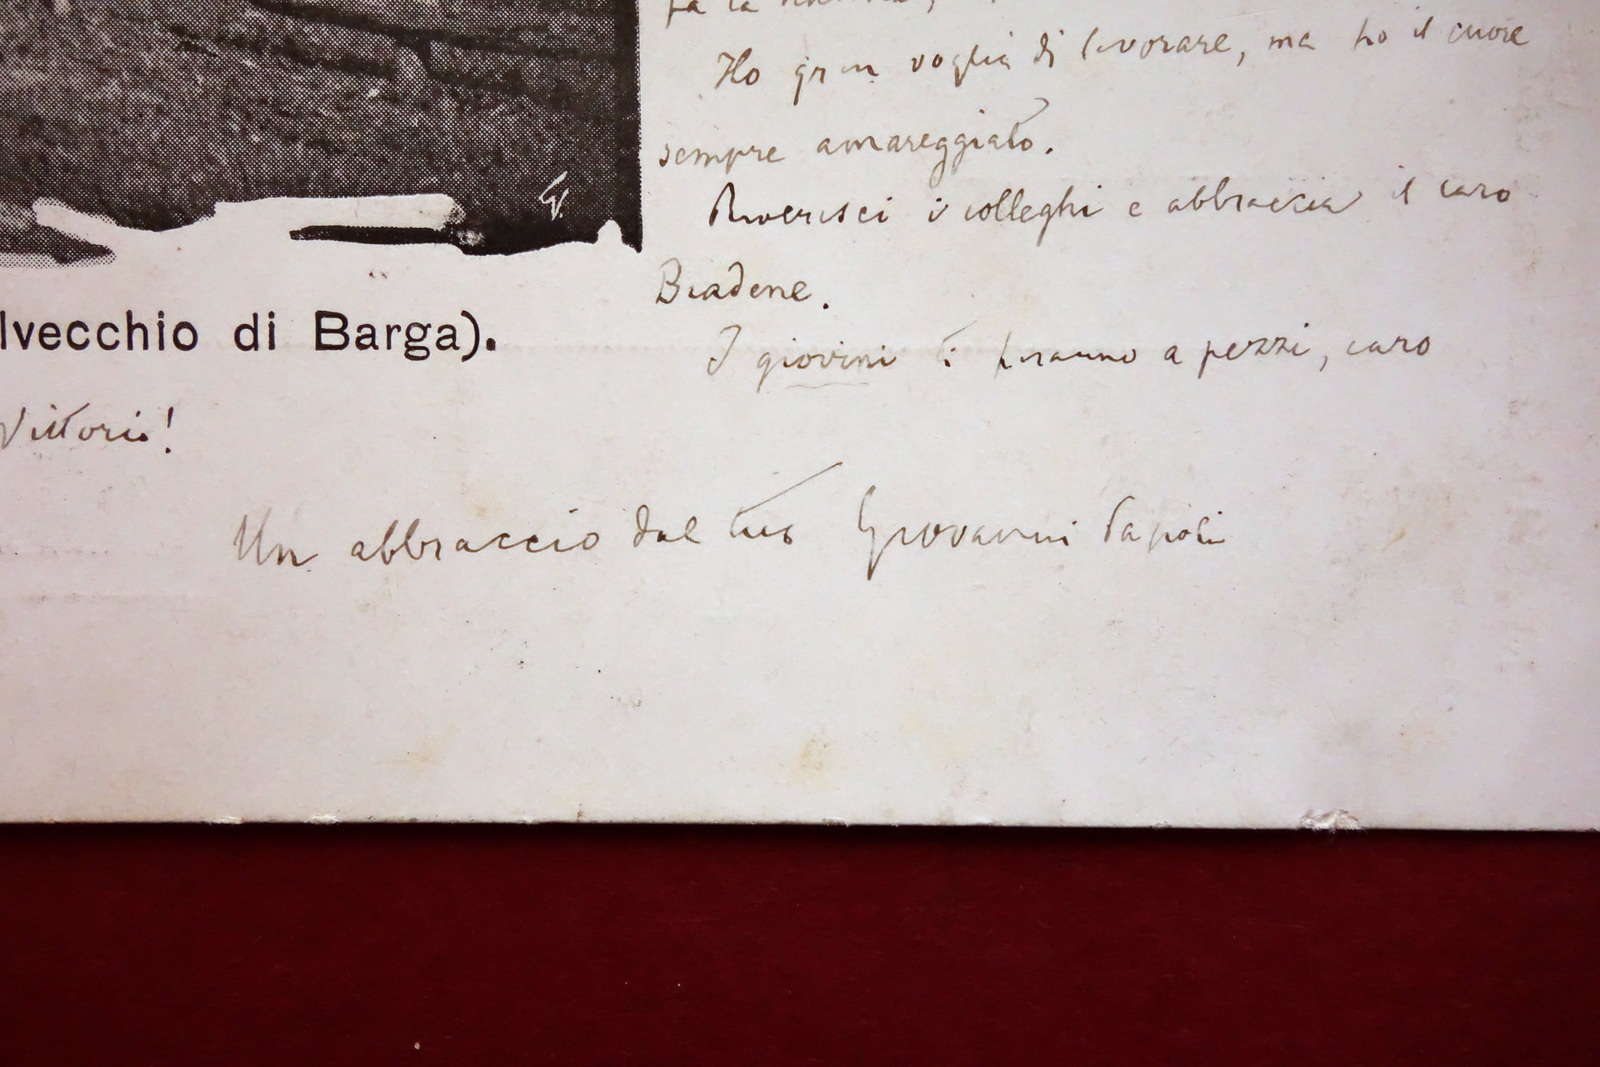 fa la
Ho gran voglia di lavorare, ma ho il cuore
sempre amareggiato.
Riverisci i colleghi e abbraccia il caro
Biadene.
lvecchio di Barga).
I giovini ti faranno a pezzi, caro
Vittorio!
Un abbraccio dal tuo Giovanni Pascoli